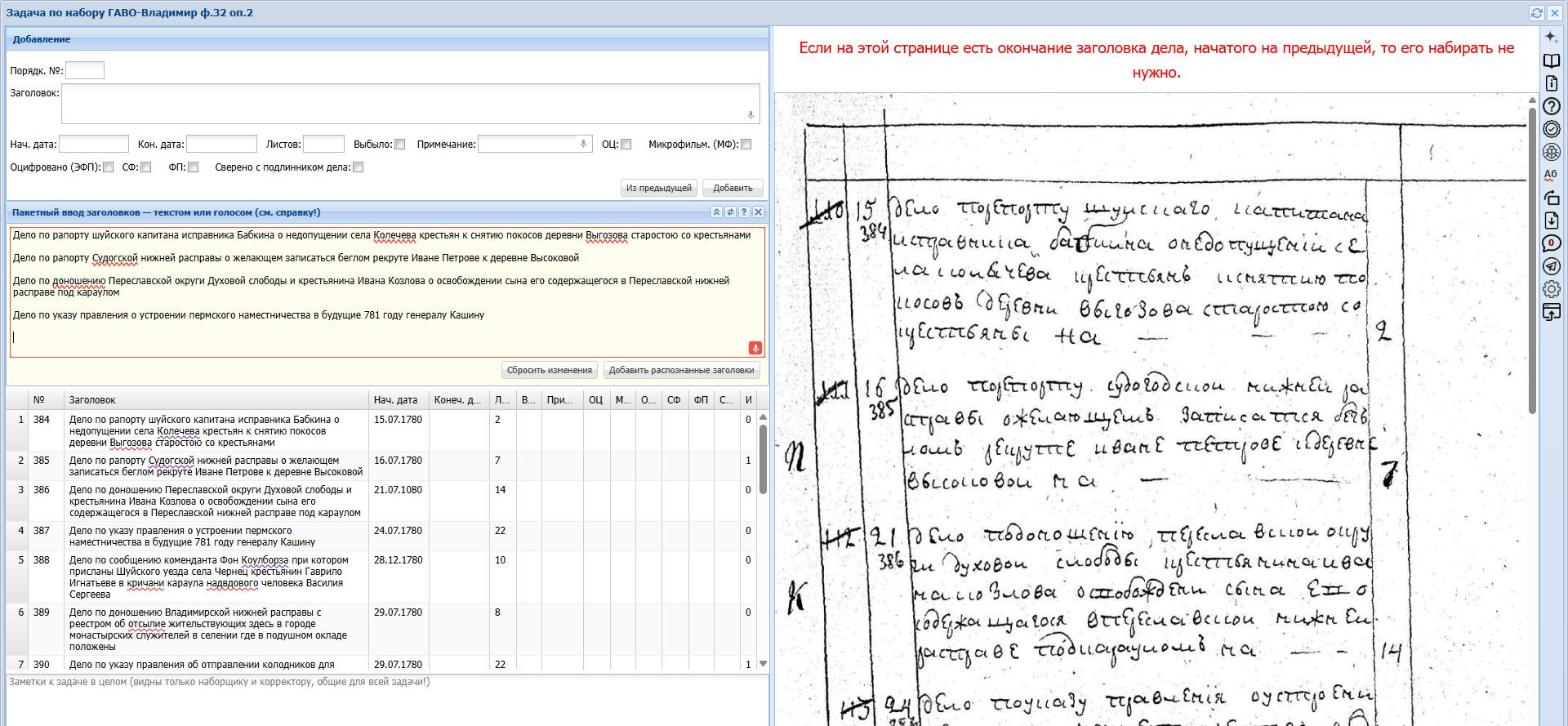 Задача по набору ГАВО-Владимир ф.32 оп.2
Добавление
Порядк. №:
Заголовок:
Нач. дата:
Кон. дата:
Листов:
Выбыло:
Примечание:
ОЦ:
Микрофильм. (МФ):
Оцифровано (ЭФП):
СФ:
ФП:
Сверено с подлинником дела:
Из предыдущей
Добавить
Пакетный ввод заголовков — текстом или голосом (см. справку!)
Дело по рапорту шуйского капитана исправника Бабкина о недопущении села Колечева крестьян к снятию покосов деревни Выгозова старостою со крестьянами
Дело по рапорту Судогской нижней расправы о желающем записаться беглом рекруте Иване Петрове к деревне Высоковой
Дело по доношению Переславской округи Духовой слободы и крестьянина Ивана Козлова о освобождении сына его содержащегося в Переславской нижней
расправе под караулом
Дело по указу правления о устроении пермского наместничества в будущие 781 году генералу Кашину
Сбросить изменения
Добавить распознанные заголовки
№ Заголовок Нач. дата Конеч. д... Л... В... При... ОЦ М... О... СФ ФП С... И
1 384 Дело по рапорту шуйского капитана исправника Бабкина о 15.07.1780 2 0
недопущении села Колечева крестьян к снятию покосов
деревни Выгозова старостою со крестьянами
2 385 Дело по рапорту Судогской нижней расправы о желающем 16.07.1780 7 1
записаться беглом рекруте Иване Петрове к деревне Высоковой
3 386 Дело по доношению Переславской округи Духовой слободы и 21.07.1080 14 0
крестьянина Ивана Козлова о освобождении сына его
содержащегося в Переславской нижней расправе под караулом
4 387 Дело по указу правления о устроении пермского 24.07.1780 22 0
наместничества в будущие 781 году генералу Кашину
5 388 Дело по сообщению коменданта Фон Коулборза при котором 28.12.1780 10 0
присланы Шуйского уезда села Чернец крестьянин Гаврило
Игнатьеве в кричани караула надвдового человека Василия
Сергеева
6 389 Дело по доношению Владимирской нижней расправы с 29.07.1780 8 0
реестром об отсылие жительствующих здесь в городе
монастырских служителей в селении где в подушном окладе
положены
7 390 Дело по указу правления об отправлении колодников для 29.07.1780 22 1
Заметки к задаче в целом (видны только наборщику и корректору, общие для всей задачи!)
Если на этой странице есть окончание заголовка дела, начатого на предыдущей, то его набирать не
нужно.
15 дело порепорту шуискаго, капитана
384 исправника бабкина онедопущении се
ла колѣчева крестьянъ кснятию по
косовъ деревни выгозова старостою со
крестьяны на — — — 2
16 дело порепорту судогодскои нижней ра
385 справы ожелающемъ записатся бег
ломъ рекруте иване петрове кдеревне
П
высоковои на — — 7
112 21 дело подоношению переславскои окру
386 ги духовои слободы крестьянина ива
на козлова освобождении сына его
К
содержащагося впереславскои нижнеи
расправе подкарауломъ на — — 14
113 24 дело поуказу правления оустроени
Аб
0